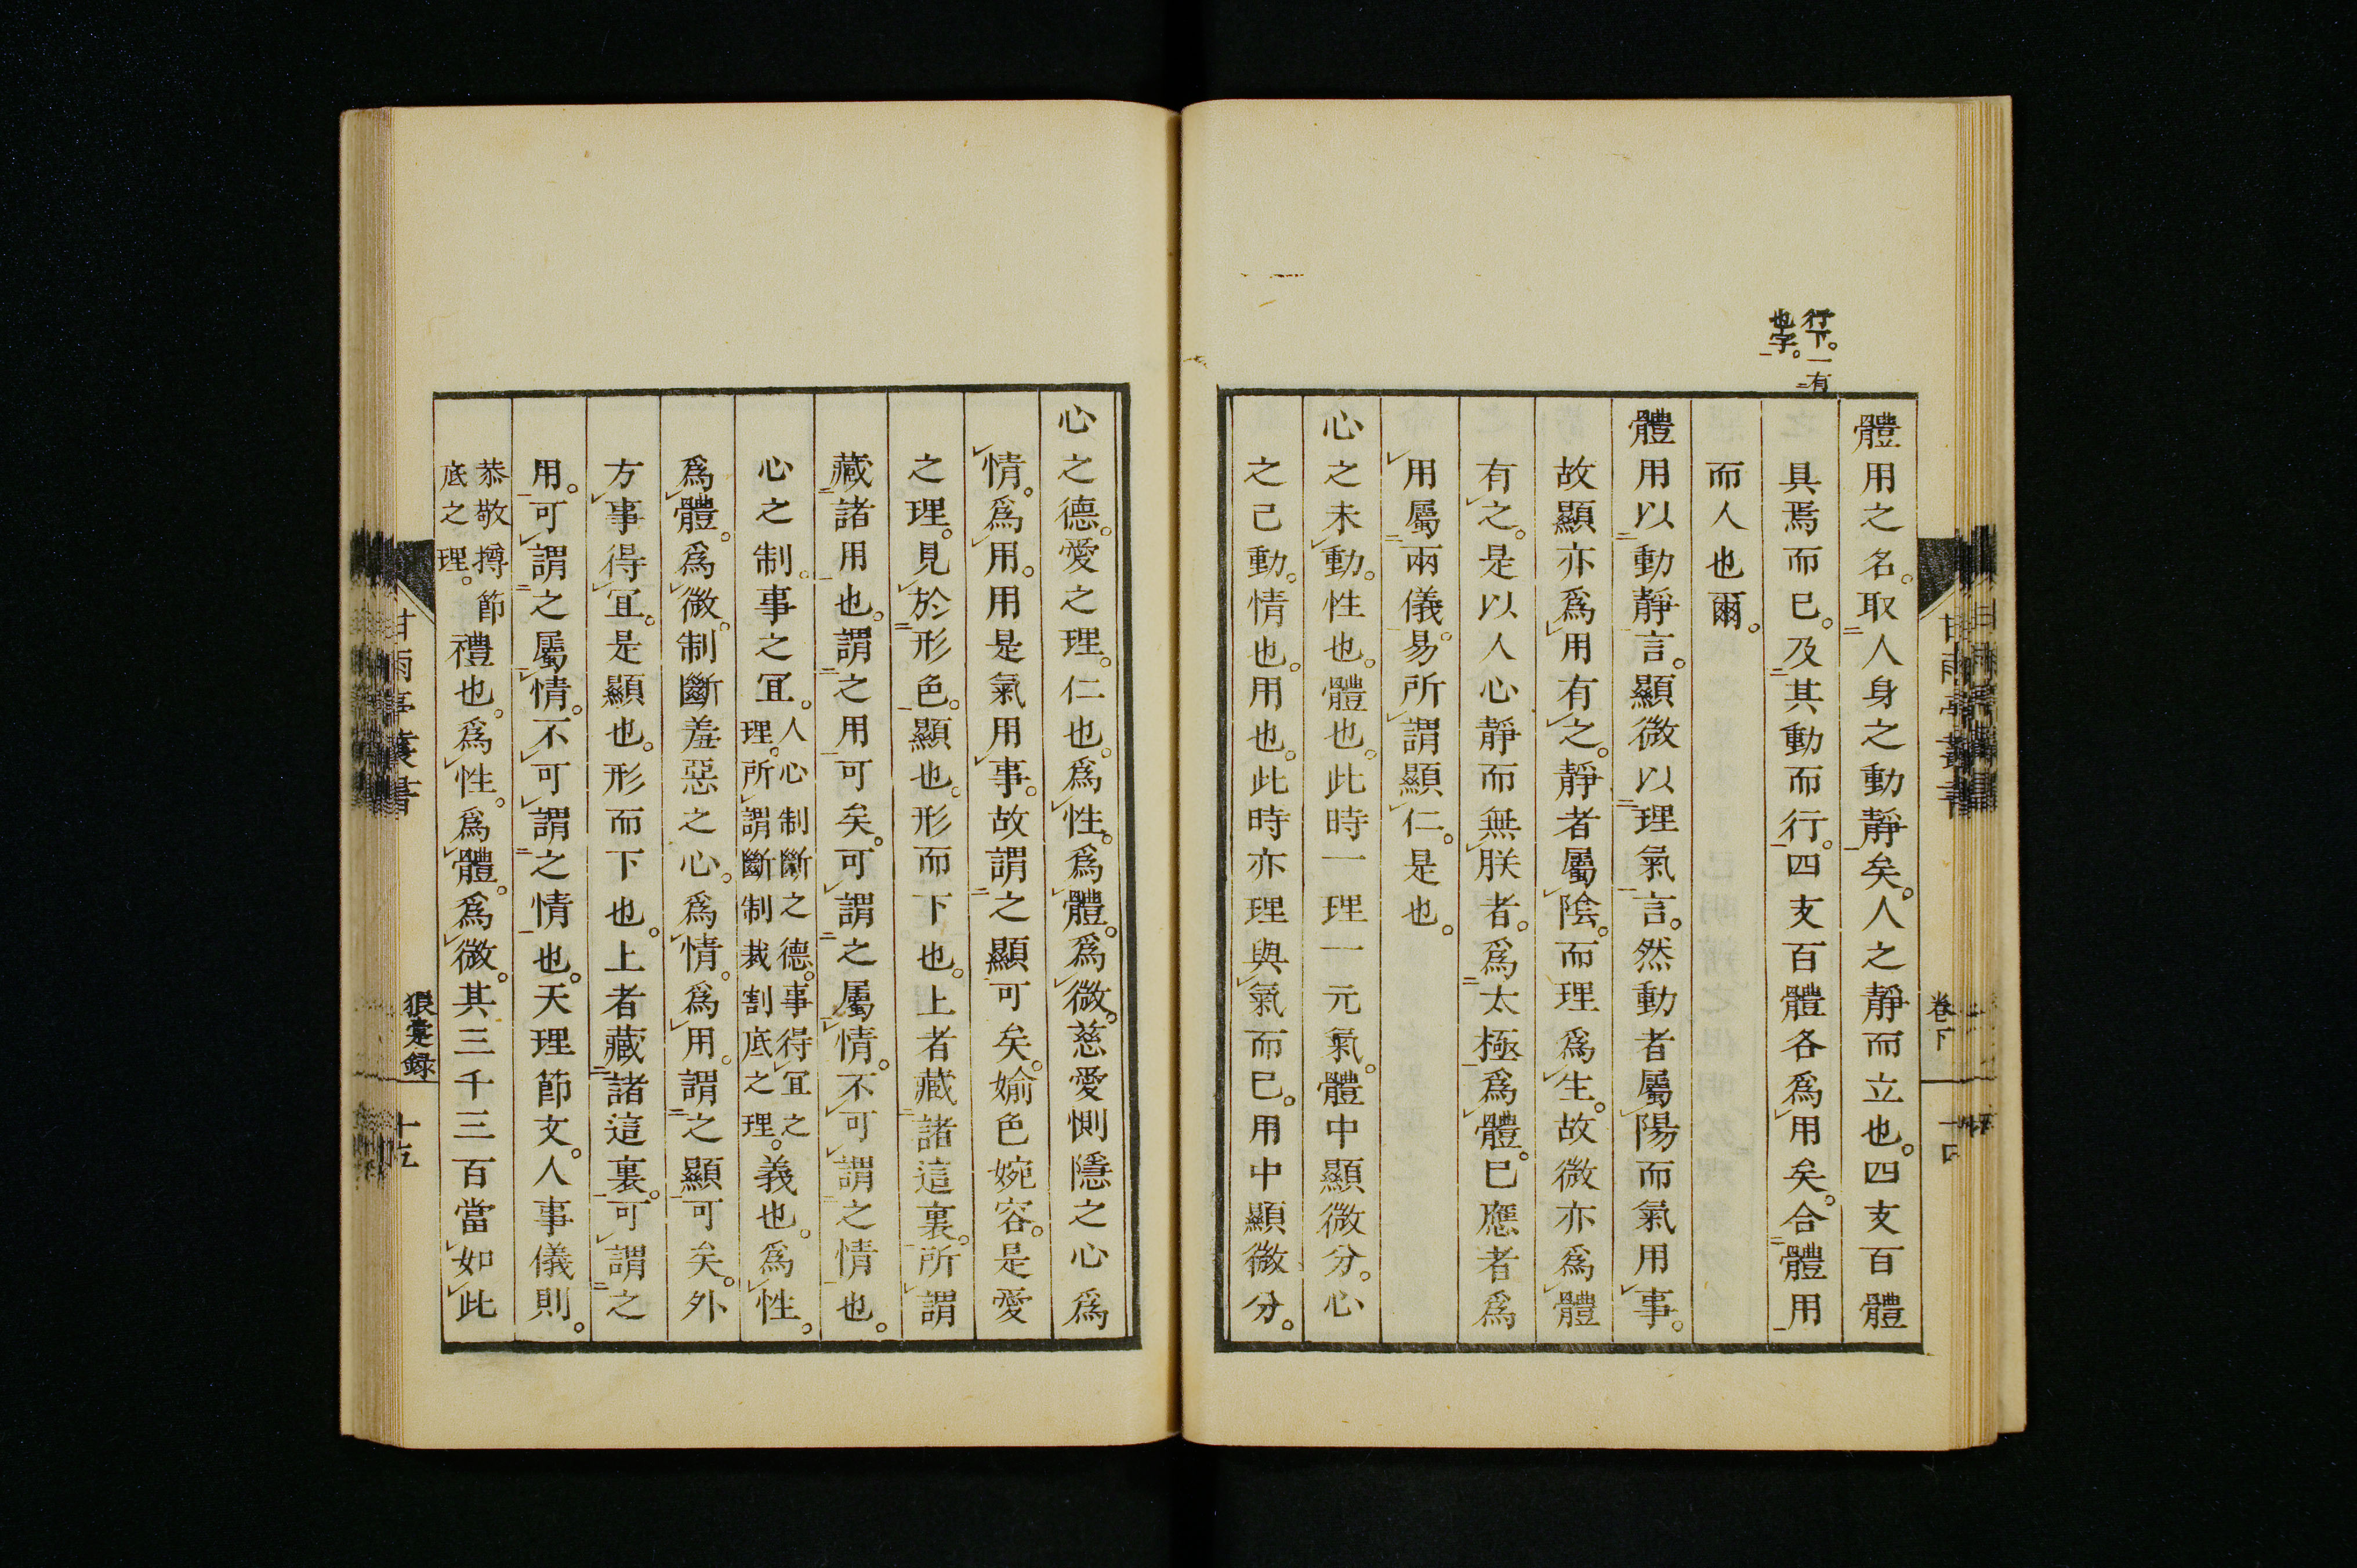 行下。一有
也字。
體用之名。取人身之動靜矣。人之靜而立也。四支百體
具焉而已。及其動而行。四支百體各爲用矣。合體用
而人也爾。
體用以動靜言。顯微以理氣言。然動者屬陽而氣用事。
故顯亦爲用有之。靜者屬陰。而理爲生。故微亦爲體
有之。是以人心靜而無朕者。爲太極爲體。已應者爲
用屬兩儀。易所謂顯仁。是也。
心之未動。性也。體也。此時一理一元氣。體中顯微分。心
之已動。情也。用也。此時亦理與氣而已。用中顯微分。
卷下
心之德。愛之理。仁也。爲性。爲體。爲微。慈愛惻隱之心爲
情。爲用。用是氣用事。故謂之顯可矣。婾色婉容。是愛
之理。見於形色。顯也。形而下也。上者藏諸這裏。所謂
藏諸用也。謂之用可矣。可謂之屬情。不可謂之情也。
心之制。事之冝。人心制斷之德。事得冝之
理。所謂斷制裁割底之理。義也。爲性。
爲體。爲微。制斷羞惡之心。爲情。爲用。謂之顯可矣。外
方事得冝。是顯也。形而下也。上者藏諸這裏。可謂之
用。可謂之屬情。不可謂之情也。天理節文。人事儀則。
恭敬撙節
底之理。禮也。爲性。爲體。爲微。其三千三百當如此
甘雨亭叢書
狼疐録
十五